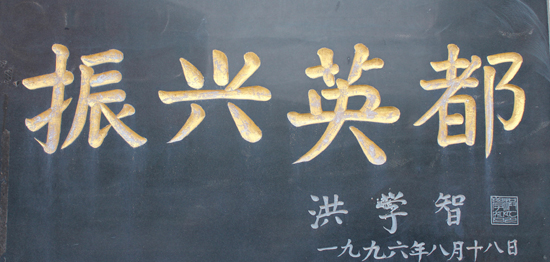 振兴英都
洪学智
一九九六年八月十八日